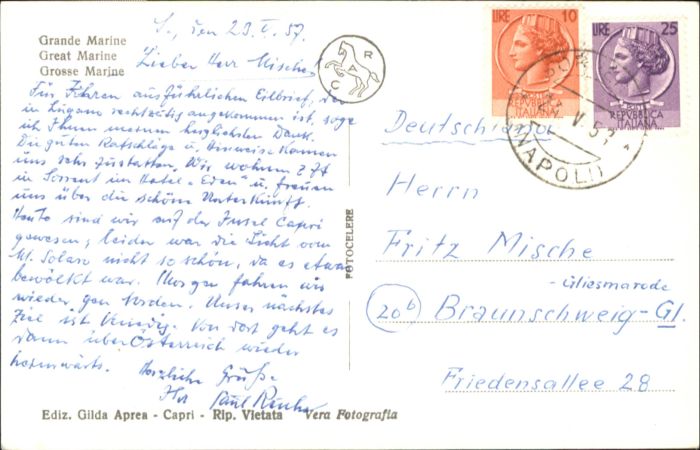 Grande Marine
Great Marine
Grosse Marine
S., den 23. V. 57.
Lieber Herr Mische,
Für Ihren ausführlichen Eilbrief, der
in Lugano rechtzeitig angekommen ist, sage
ich Ihnen meinen herzlichsten Dank.
Die guten Ratschläge u. Hinweise kamen
uns sehr zustatten. Wir wohnen z. Zt
in Sorrent im Hotel "Eden" u. freuen
uns über die schöne Unterkunft.
Heute sind wir auf der Insel Capri
gewesen; leider war die Sicht vom
M. Solaro nicht so schön, da es etwas
bewölkt war. Morgen fahren wir
wieder gen Norden. Unser nächstes
Ziel ist Venedig. Von dort geht es
dann über Österreich wieder
heimwärts.
Herzliche Grüße
Ihr Paul
Ediz. Gilda Aprea - Capri - Rip. Vietata Vera Fotografia
FOTOCELERE
R A C
LIRE 10
REPVBBLICA
ITALIANA
LIRE 25
REPVBBLICA
ITALIANA
V 57
(NAPOLI)
Deutschland
Herrn
Fritz Mische
Gliesmarode
20b Braunschweig-Gl.
Friedensallee 28